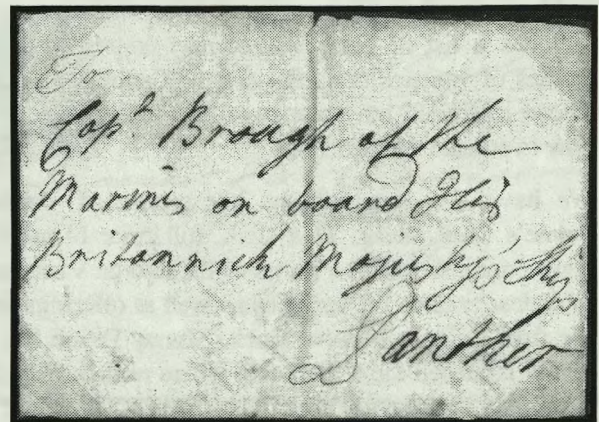 To
Capt Brough of the
Marines on board His
Britannick Majesty's Ship
Panther